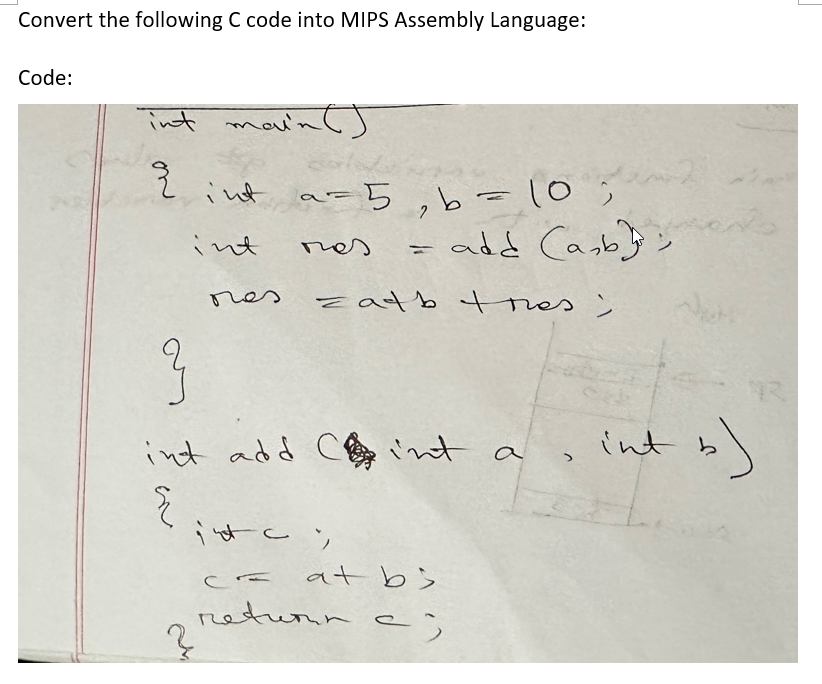 Convert the following C code into MIPS Assembly Language:
Code:
int main()
{ int a=5, b=10;
int res = add (a,b);
res = a+b+res;
}
int add (int a, int b)
{
int c;
c = a+b;
return c;
}